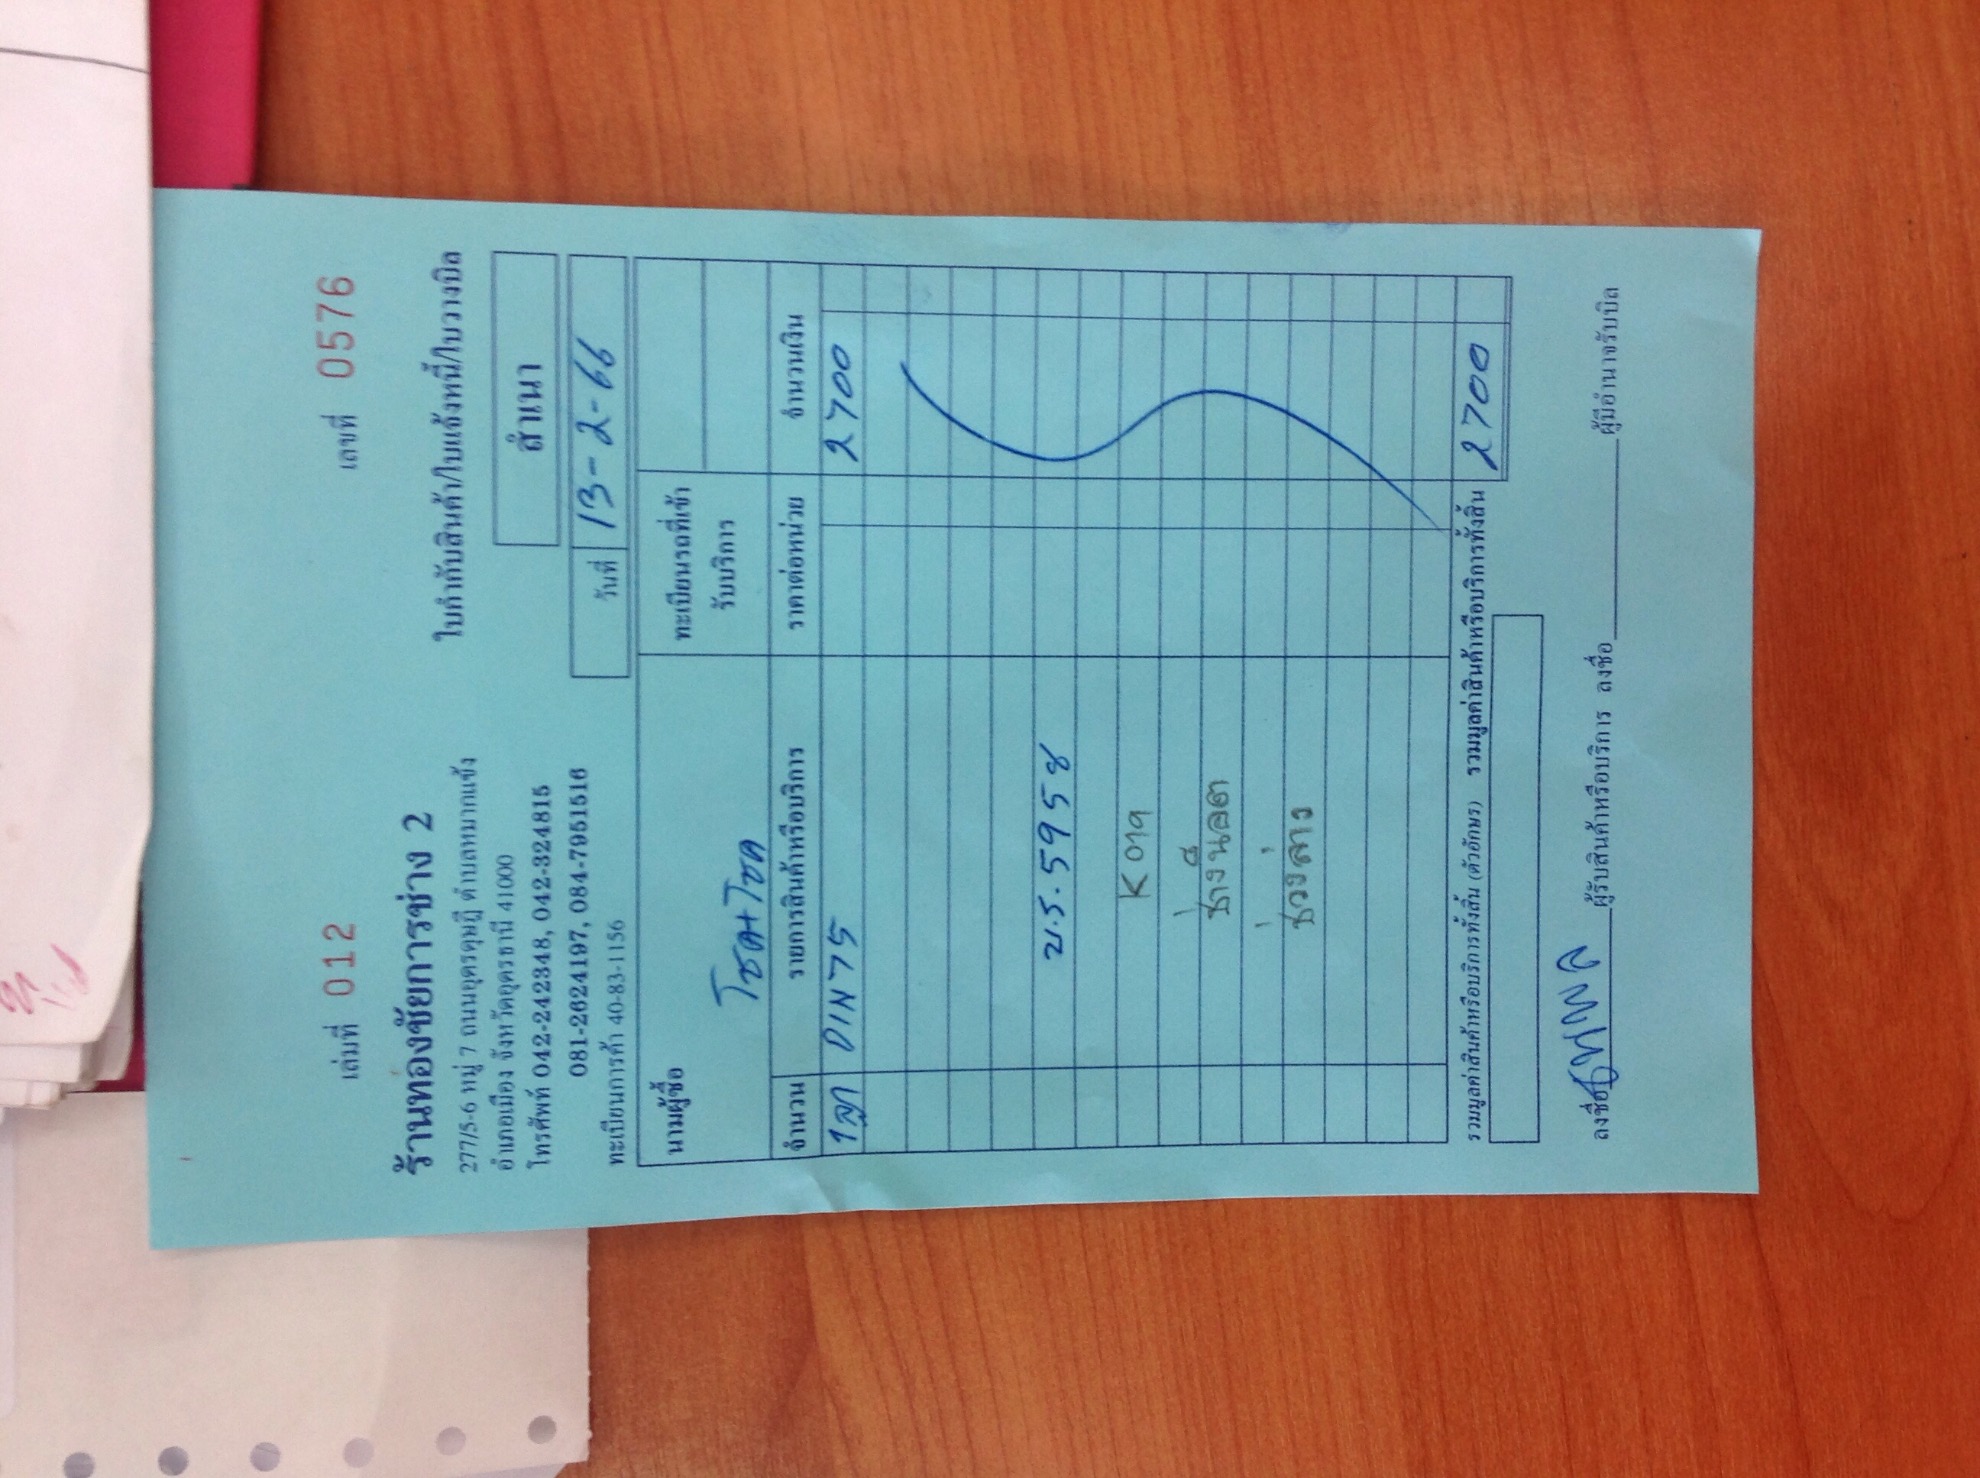 เล่มที่ 012 เลขที่ 0576
ร้านทองชัยการช่าง 2 ใบกำกับสินค้า/ใบแจ้งหนี้/ใบวางบิล
277/5-6 หมู่ 7 ถนนอุดรดุษฎี ตำบลหมากแข้ง
อำเภอเมือง จังหวัดอุดรธานี 41000
สำเนา
โทรศัพท์ 042-242348, 042-324815
081-2624197, 084-7951516
วันที่ 13-2-66
ทะเบียนการค้า 40-83-1156
นามผู้ซื้อ ทะเบียนรถที่เข้า
รับบริการ
โชคโชค
จำนวน รายการสินค้าหรือบริการ ราคาต่อหน่วย จำนวนเงิน
1ลูก DIN75 2700
ม.ร.5958
ช่วงล่าง
รวมมูลค่าสินค้าหรือบริการทั้งสิ้น (ตัวอักษร) รวมมูลค่าสินค้าหรือบริการทั้งสิ้น 2700
ลงชื่อ ผู้รับสินค้าหรือบริการ ลงชื่อ ผู้มีอำนาจรับบิล